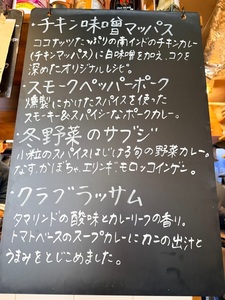 ・チキン味噌マッパス
ココナッツたっぷりの南インドのチキンカレー
(チキンマッパス)に白味噌を加え、コクを
深めたオリジナルレシピ。
・スモークペッパーポーク
燻製にかけたスパイスを使った
スモーキー&スパイシーなポークカレー。
・冬野菜のサブジ
小粒のスパイスはじける旬の野菜カレー。
なす、かぼちゃ、エリンギ、モロッコインゲン。
・クラブラッサム
タマリンドの酸味とカレーリーフの香り。
トマトベースのスープカレーにカニの出汁と
うまみをとじこめました。